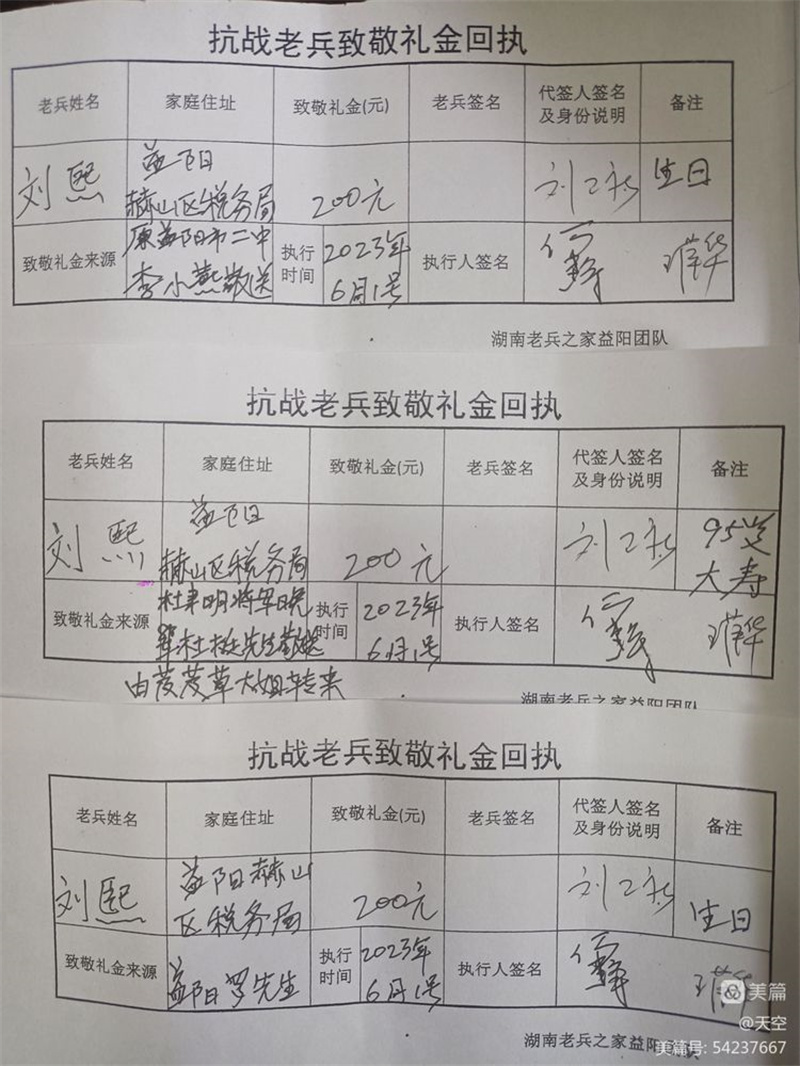 抗战老兵致敬礼金回执
老兵姓名 家庭住址 致敬礼金(元) 老兵签名 代签人签名及身份说明 备注
刘熙 益阳赫山区税务局 200元 生日
致敬礼金来源 原益阳市二中李小燕敬送 执行时间 2023年6月1号 执行人签名
湖南老兵之家益阳团队
抗战老兵致敬礼金回执
老兵姓名 家庭住址 致敬礼金(元) 老兵签名 代签人签名及身份说明 备注
刘熙 益阳赫山区税务局 200元 95岁大寿
致敬礼金来源 杜聿明将军 先生敬送 执行时间 2023年6月1号 执行人签名
由芨芨草大姐转来
湖南老兵之家益阳团队
抗战老兵致敬礼金回执
老兵姓名 家庭住址 致敬礼金(元) 老兵签名 代签人签名及身份说明 备注
刘熙 益阳赫山区税务局 200元 生日
致敬礼金来源 益阳罗先生 执行时间 2023年6月1号 执行人签名
湖南老兵之家益阳团队
美篇
@天空
美篇号: 54237667